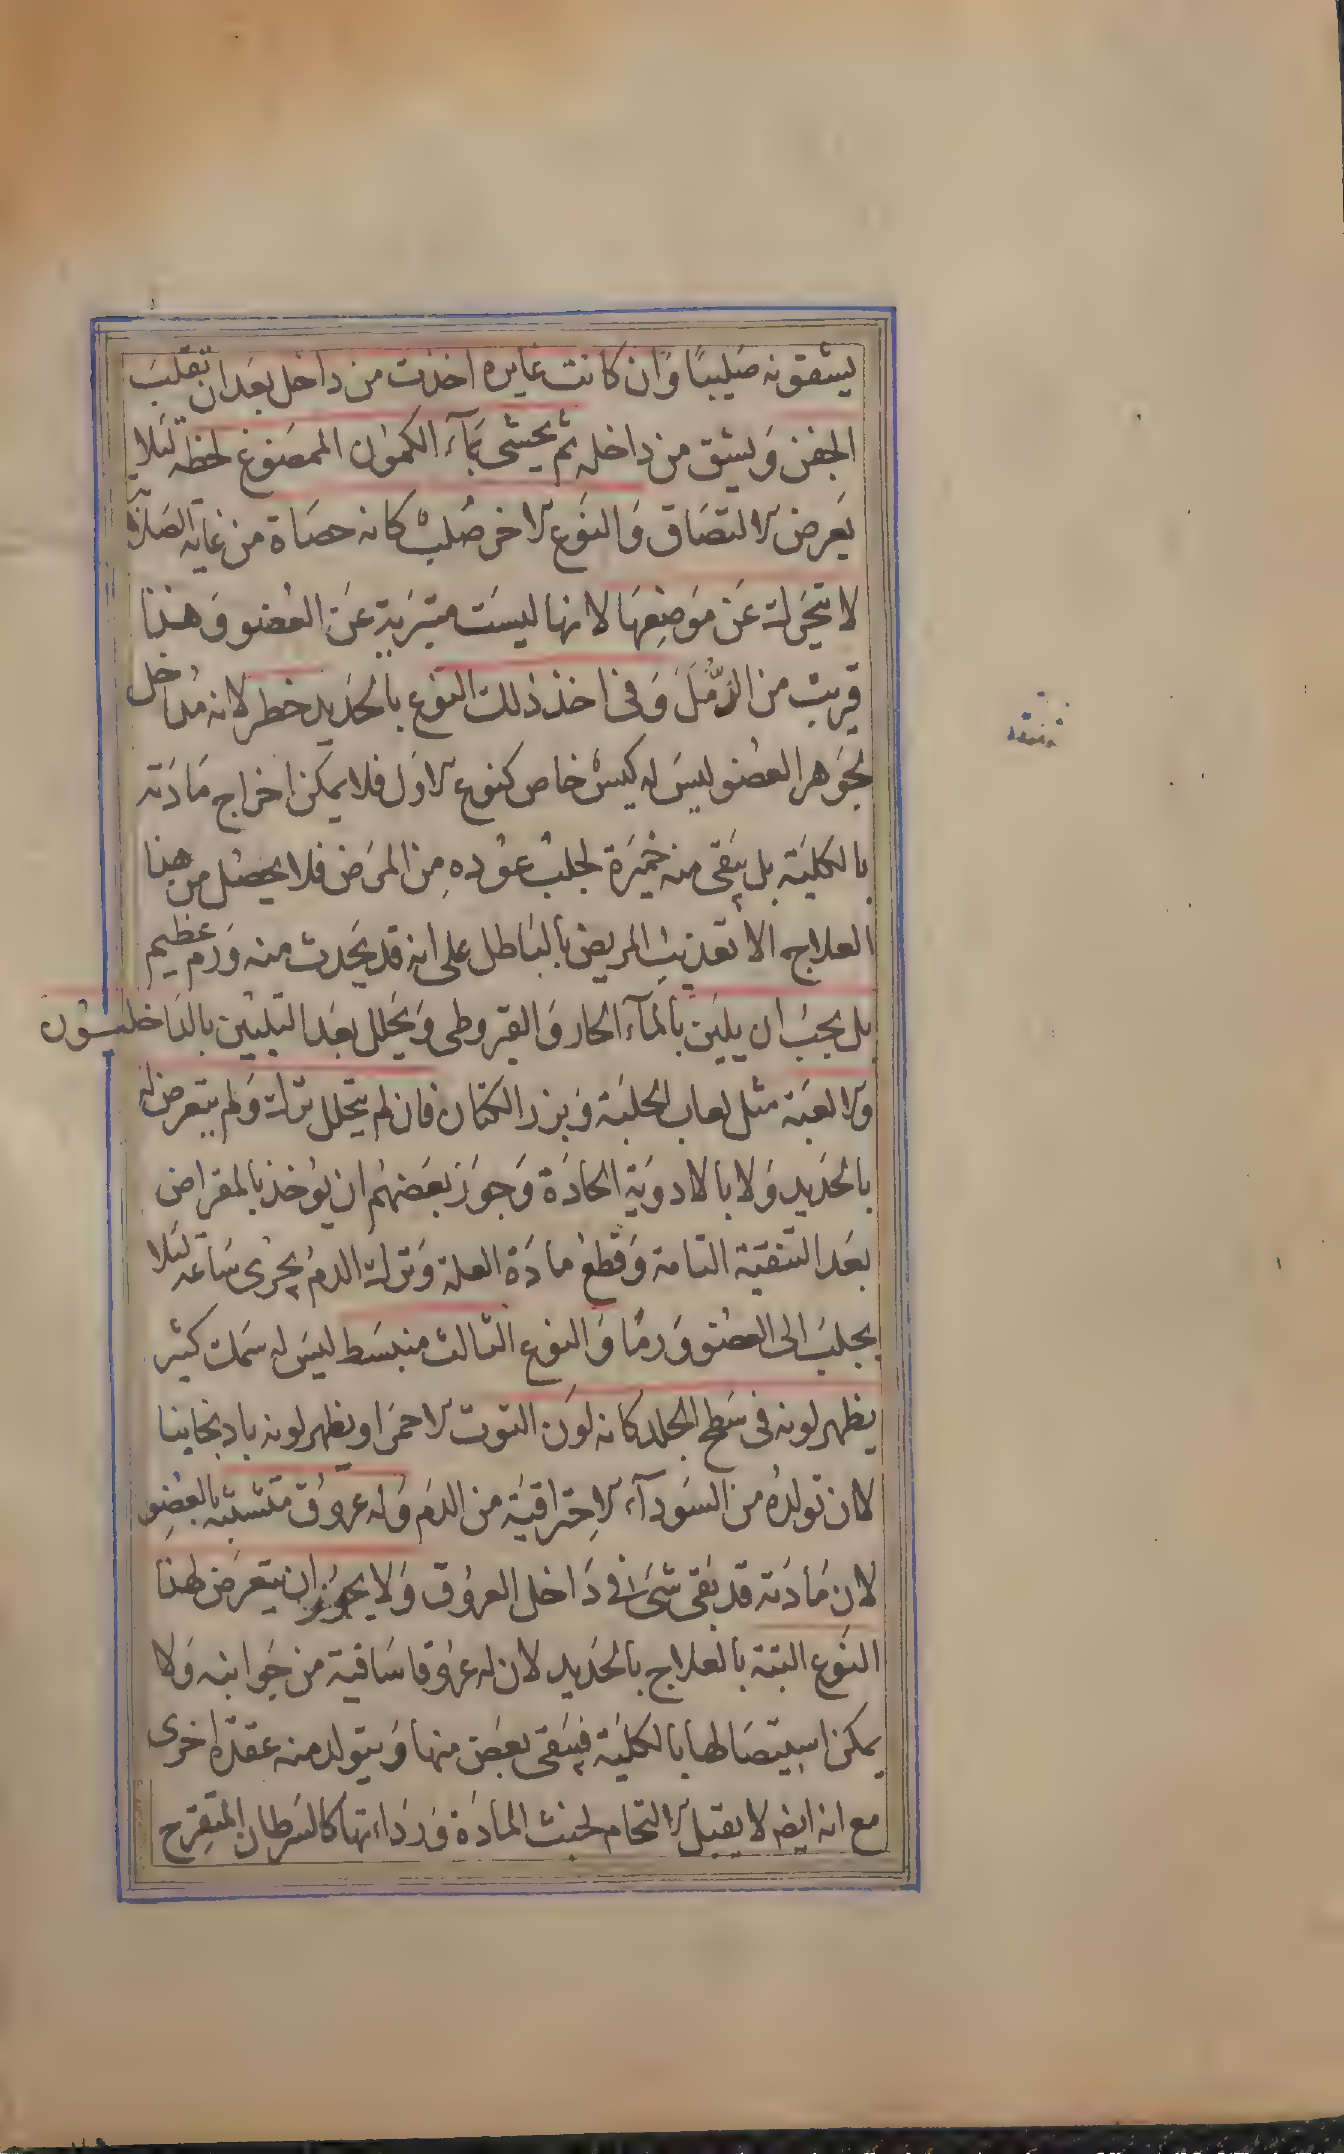 يشقونه صليبًا وَان كانت غايره اخذت من داخل بعَدان تقلبَ
الجفن وَيشق من داخله ثم يحشى بمآء الكمون الممضوغ لحظه لئلا
يَعرض الالتصَاق وَالنوَع الاخر صُلبٌ كانه حصَاة من غاية الصَلابة
لا تتحَرك عَن مَوضِعهَا لانها ليسَت متبرية عَن العُضو وَهذا
قريبٌ من الرَّمَل وَفى اخذ ذلك النوَع بالحَديد خطر لانه مُداخل
لجَوهر العضو ليسَ له كيسٌ خاص كنوع الاوَل فلا يمكن اخراج مَادَته
بالكليَة بل يَبقى منه خميَرة لجلب عوده مِن المرَض فلا يحصُل من هذا
العلاج الا تعذيبُ المريض بالبَاطل على انه قد يحَدث منه وَرم عظيم
بل يجبُ ان يليَن بالمآء الحار وَالقيروطى وَيحَلل بعَد التليين بالدَاخليون
والالعبَة مثل لعاب الحلبَة وَبزر الكتان فان لم يتحلل ترك وَلم يتعرض له
بالحَديد وَلا بالادوَية الحادَة وَجوَز بعَضهُم ان يؤخذ بالمقراض
بعَد التنقية التامة وَقطع مادَة العلة وَترك الدمُ يجرى سَاعَه لئلا
يجلبَ الى العضو وَرمًا وَالنوع الثالث منبسَط ليسَ له سمك كثير
يظهر لونه فى سَطح الجلد كانه لوَن التوت الاحمَر او يظهر لونه باذنجانيا
لان تولدهُ من السَودآء الاحِتراقيَة من الدم وَله عروُق متشبثه بالعضو
لان مَادَته قد بقى شئ فى دَاخل العروُق وَلا يجوز ان يتعرَض لهذا
النوَع البتة بالعلاج بالحَديد لان له عروُقا سَاقية من جَوانبه وَلا
يمكن استيصَالها بالكليَة فيبَقى بعَض منها وَيتولد منه عقدة اخرى
مع انه ايضا لا يقبل الالتحام لخبث المادَة وَردَاءتها كالسَرطان المتقرح